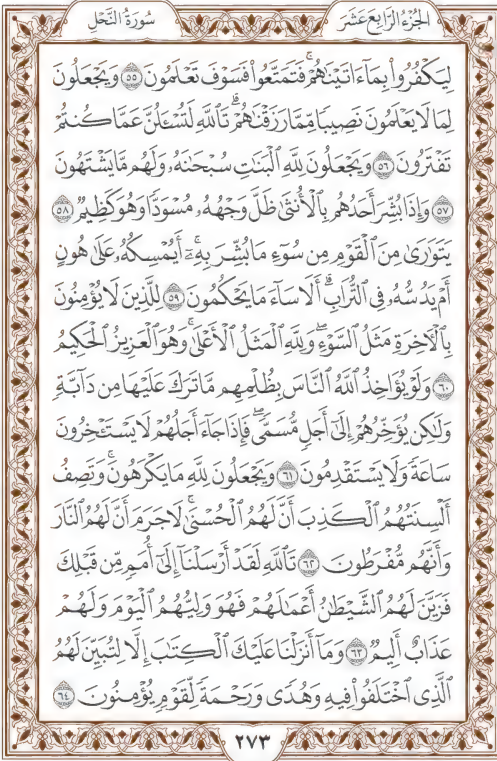 الجُزْءُ الرَّابِعَ عَشَرَ
سُورَةُ النَّحْلِ
لِيَكْفُرُوا۟ بِمَآ ءَاتَيْنَٰهُمْ ۚ فَتَمَتَّعُوا۟ فَسَوْفَ تَعْلَمُونَ ٥٥ وَيَجْعَلُونَ
لِمَا لَا يَعْلَمُونَ نَصِيبًا مِّمَّا رَزَقْنَٰهُمْ ۗ تَٱللَّهِ لَتُسْـَٔلُنَّ عَمَّا كُنتُمْ
تَفْتَرُونَ ٥٦ وَيَجْعَلُونَ لِلَّهِ ٱلْبَنَٰتِ سُبْحَٰنَهُۥ وَلَهُم مَّا يَشْتَهُونَ
٥٧ وَإِذَا بُشِّرَ أَحَدُهُم بِٱلْأُنثَىٰ ظَلَّ وَجْهُهُۥ مُسْوَدًّا وَهُوَ كَظِيمٌ ٥٨
يَتَوَٰرَىٰ مِنَ ٱلْقَوْمِ مِن سُوٓءِ مَا بُشِّرَ بِهِۦٓ ۚ أَيُمْسِكُهُۥ عَلَىٰ هُونٍ
أَمْ يَدُسُّهُۥ فِى ٱلتُّرَابِ ۗ أَلَا سَآءَ مَا يَحْكُمُونَ ٥٩ لِلَّذِينَ لَا يُؤْمِنُونَ
بِٱلْـَٔاخِرَةِ مَثَلُ ٱلسَّوْءِ ۖ وَلِلَّهِ ٱلْمَثَلُ ٱلْأَعْلَىٰ ۚ وَهُوَ ٱلْعَزِيزُ ٱلْحَكِيمُ
٦٠ وَلَوْ يُؤَاخِذُ ٱللَّهُ ٱلنَّاسَ بِظُلْمِهِم مَّا تَرَكَ عَلَيْهَا مِن دَآبَّةٍ
وَلَٰكِن يُؤَخِّرُهُمْ إِلَىٰٓ أَجَلٍ مُّسَمًّى ۖ فَإِذَا جَآءَ أَجَلُهُمْ لَا يَسْتَـْٔخِرُونَ
سَاعَةً ۖ وَلَا يَسْتَقْدِمُونَ ٦١ وَيَجْعَلُونَ لِلَّهِ مَا يَكْرَهُونَ ۚ وَتَصِفُ
أَلْسِنَتُهُمُ ٱلْكَذِبَ أَنَّ لَهُمُ ٱلْحُسْنَىٰ ۖ لَا جَرَمَ أَنَّ لَهُمُ ٱلنَّارَ
وَأَنَّهُم مُّفْرَطُونَ ٦٢ تَٱللَّهِ لَقَدْ أَرْسَلْنَآ إِلَىٰٓ أُمَمٍ مِّن قَبْلِكَ
فَزَيَّنَ لَهُمُ ٱلشَّيْطَٰنُ أَعْمَٰلَهُمْ فَهُوَ وَلِيُّهُمُ ٱلْيَوْمَ وَلَهُمْ
عَذَابٌ أَلِيمٌ ٦٣ وَمَآ أَنزَلْنَا عَلَيْكَ ٱلْكِتَٰبَ إِلَّا لِتُبَيِّنَ لَهُمُ
ٱلَّذِى ٱخْتَلَفُوا۟ فِيهِ ۙ وَهُدًى وَرَحْمَةً لِّقَوْمٍ يُؤْمِنُونَ ٦٤
٢٧٣